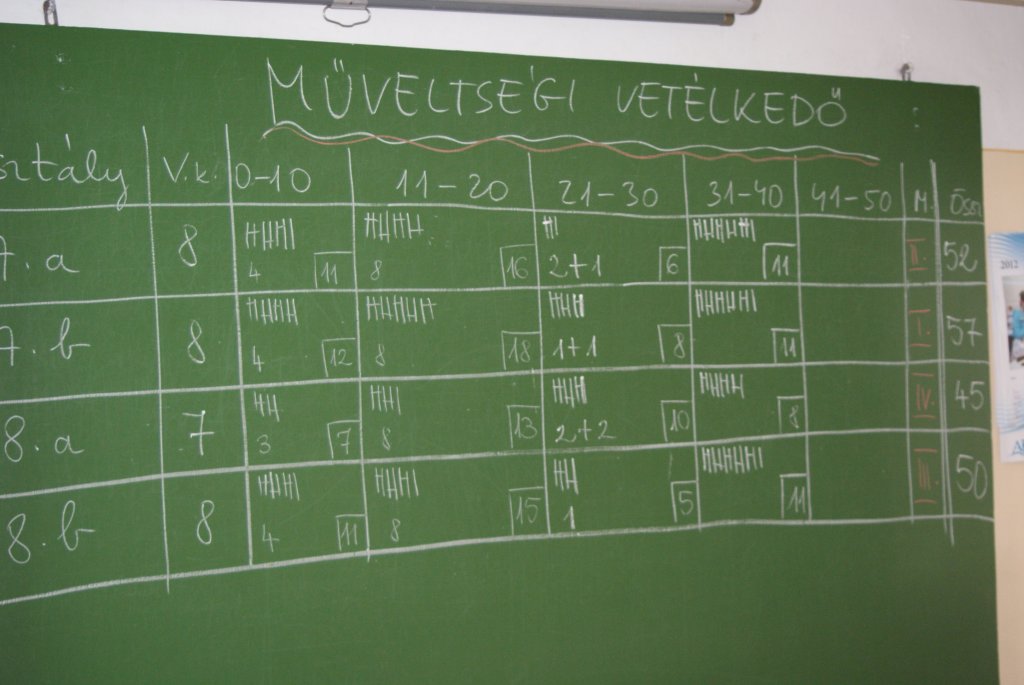 MŰVELTSÉGI VETÉLKEDŐ
sztály V.k. 0-10 11-20 21-30 31-40 41-50 M. Össz
7.a 8 4 11 8 16 2+1 6 11 II. 52
7.b 8 4 12 8 18 1+1 8 11 I. 57
8.a 7 3 7 8 13 2+2 10 8 IV. 45
8.b 8 4 11 8 15 1 5 11 III. 50
2012